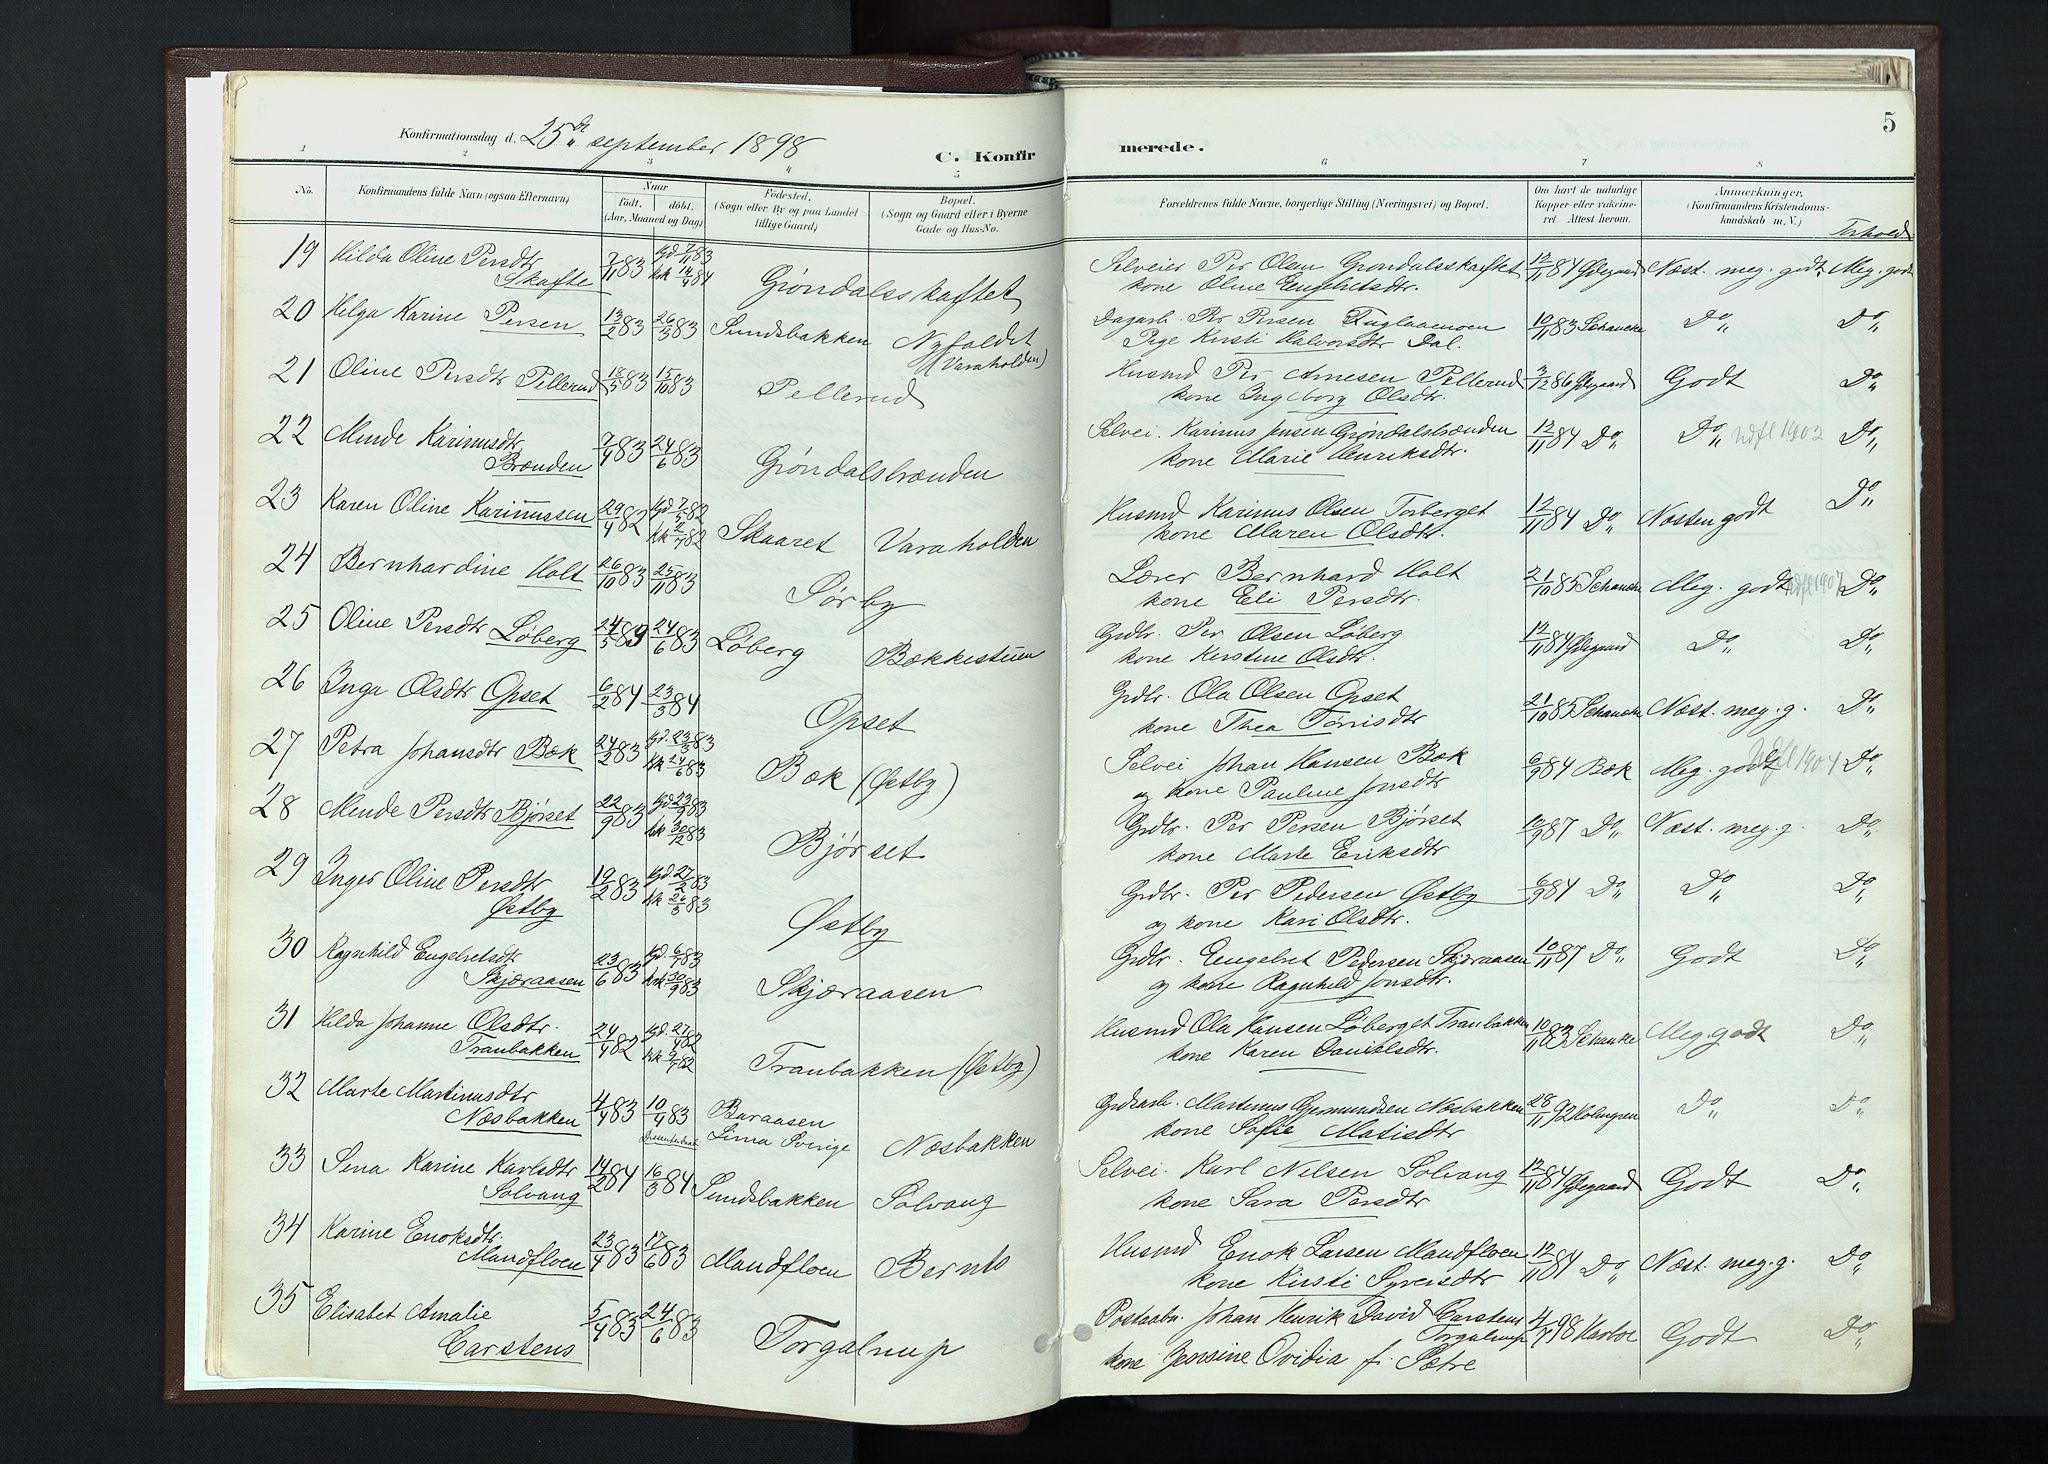 5
Konfirmationsdag d. 25de september 1898
C. Konfirmerede.
1 2 3 4 5 6 7 8
No. Konfirmandens fulde Navn (ogsaa Efternavn) Naar født. døbt. (Aar, Maaned og Dag) Fødested. (Sogn eller By og paa Landet tillige Gaard) Bopæl. (Sogn og Gaard eller i Byerne Gade og Hus-No. Forældrenes fulde Navne, borgerlige Stilling (Næringsvei) og Bopæl. Om havt de naturlige Kopper eller vakcineret. Attest herom. Anmærkninger. (Konfirmandens Kristendomskundskab m. V.) Forhold
19 Hilda Oline Persdtr 7/11 83 Gd 7/11 83 Selveier Per Olsen Grøndalsskaftet 12/11 84 Ødegaard Næst. meg. godt Meg. godt
Skafte kk 14/4 84 Grøndalsskaftet kone Oline Engebretsdtr.
20 Helga Karine Persen 13/2 83 26/3 83 Sundsbakken Nyfaldet (Varaholden) Dagarb. Per Persen Fuglaamoen 10/11 83 Schancke Do Do
Pige Kirsti Halvorsdtr Dal.
21 Oline Persdtr Pellerud 18/5 83 15/10 83 Pellerud Husmd Per Arnesen Pellerud 3/12 86 Ødegaard Godt Do
kone Ingeborg Olsdtr.
22 Minde Karinusdtr 7/4 83 24/6 83 Selvei. Karinus Jensen Grøndalsbrænden 12/11 84 Do Do Udfl 1902 Do
Brænden Grøndalsbrænden kone Marie Henriksdtr.
23 Karen Oline Karinussen 29/4 82 Skaaret Varaholden Husmd Karinus Olsen Torberget 12/11 84 Do Næsten godt Do
kone Maren Olsdtr.
24 Bernhardine Holt 26/10 83 25/11 83 Sørby Lærer Bernhard Holt 21/10 85 Schancke Meg. godt Udfl 1907 Do
kone Eli Persdtr.
25 Oline Persdtr Løberg 24/5 83 24/6 83 Løberg Bækkestuen Grdbr. Per Olsen Løberg 12/11 84 Ødegaard Do Do
kone Kerstine Olsdtr.
26 Inga Olsdtr Opset 6/2 84 23/3 84 Opset Grdbr. Ola Olsen Opset 21/10 85 Schancke Næst. meg. g. Do
kone Thea Tørrisdtr
27 Petra Johansdtr Bæk 24/2 83 Gd. 23/3 83 Selvei Johan Hansen Bæk 6/9 84 Bæk Meg. godt Udfl 1904 Do
kk 24/6 83 Bæk (Østby) og kone Pauline Jonsdtr
28 Minde Persdtr Bjørset 22/9 83 Gd 23/9 83 Grdbr. Per Persen Bjørset 10/9 87 Do Næst. meg. g. Do
kk 30/12 83 Bjørset kone Marte Eriksdtr
29 Inger Oline Persdtr 19/2 83 Gd. 27/2 83 Grdbr. Per Pedersen Østby 6/9 84 Do Do Do
Østby kk 26/3 83 Østby og kone Kari Olsdtr.
30 Ragnhild Engebretsdtr 23/6 83 Grdbr. Engebret Pedersen Skjæraasen 10/11 87 Do Godt Do
Skjæraasen kk 30/9 83 Skjæraasen og kone Ragnhild Jonsdtr.
31 Hilda Johanne Olsdtr. 24/4 82 Gd. 27/4 82 Husmd Ola Hansen Løberget Tranbakken 10/11 83 Schancke Meg. godt Do
Tranbakken kk 9/7 82 Tranbakken (Østby) kone Karen Danielsdtr.
32 Marte Martinusdtr 4/4 83 10/4 83 Baraasen Grdarb. Martinus Gjermundsen Næsbakken 28/11 92 Holmgren Do Do
Næsbakken Lima Sverige Næsbakken kone Sofie Matisdtr
33 Sina Karine Karlsdtr 14/2 84 16/3 84 Sundsbakken Solvang Selvei. Karl Nilsen Solvang 12/11 84 Ødegaard Godt Do
Solvang kone Sara Persdtr
34 Karine Enoksdtr. 23/4 83 17/6 83 Mandfloen Bernts Husmd Enok Larsen Mandfloen 12/11 84 Do Næst. meg. g. Do
Mandfloen kone Kirsti Syversdtr
35 Elisabet Amalie 5/4 83 24/6 83 Torgalrup Postaabn. Johan Henrik David Carstens 4/7 98 Karboe Godt Do
Carstens Torgalrup
kone Jensine Ovidia f. Sætre